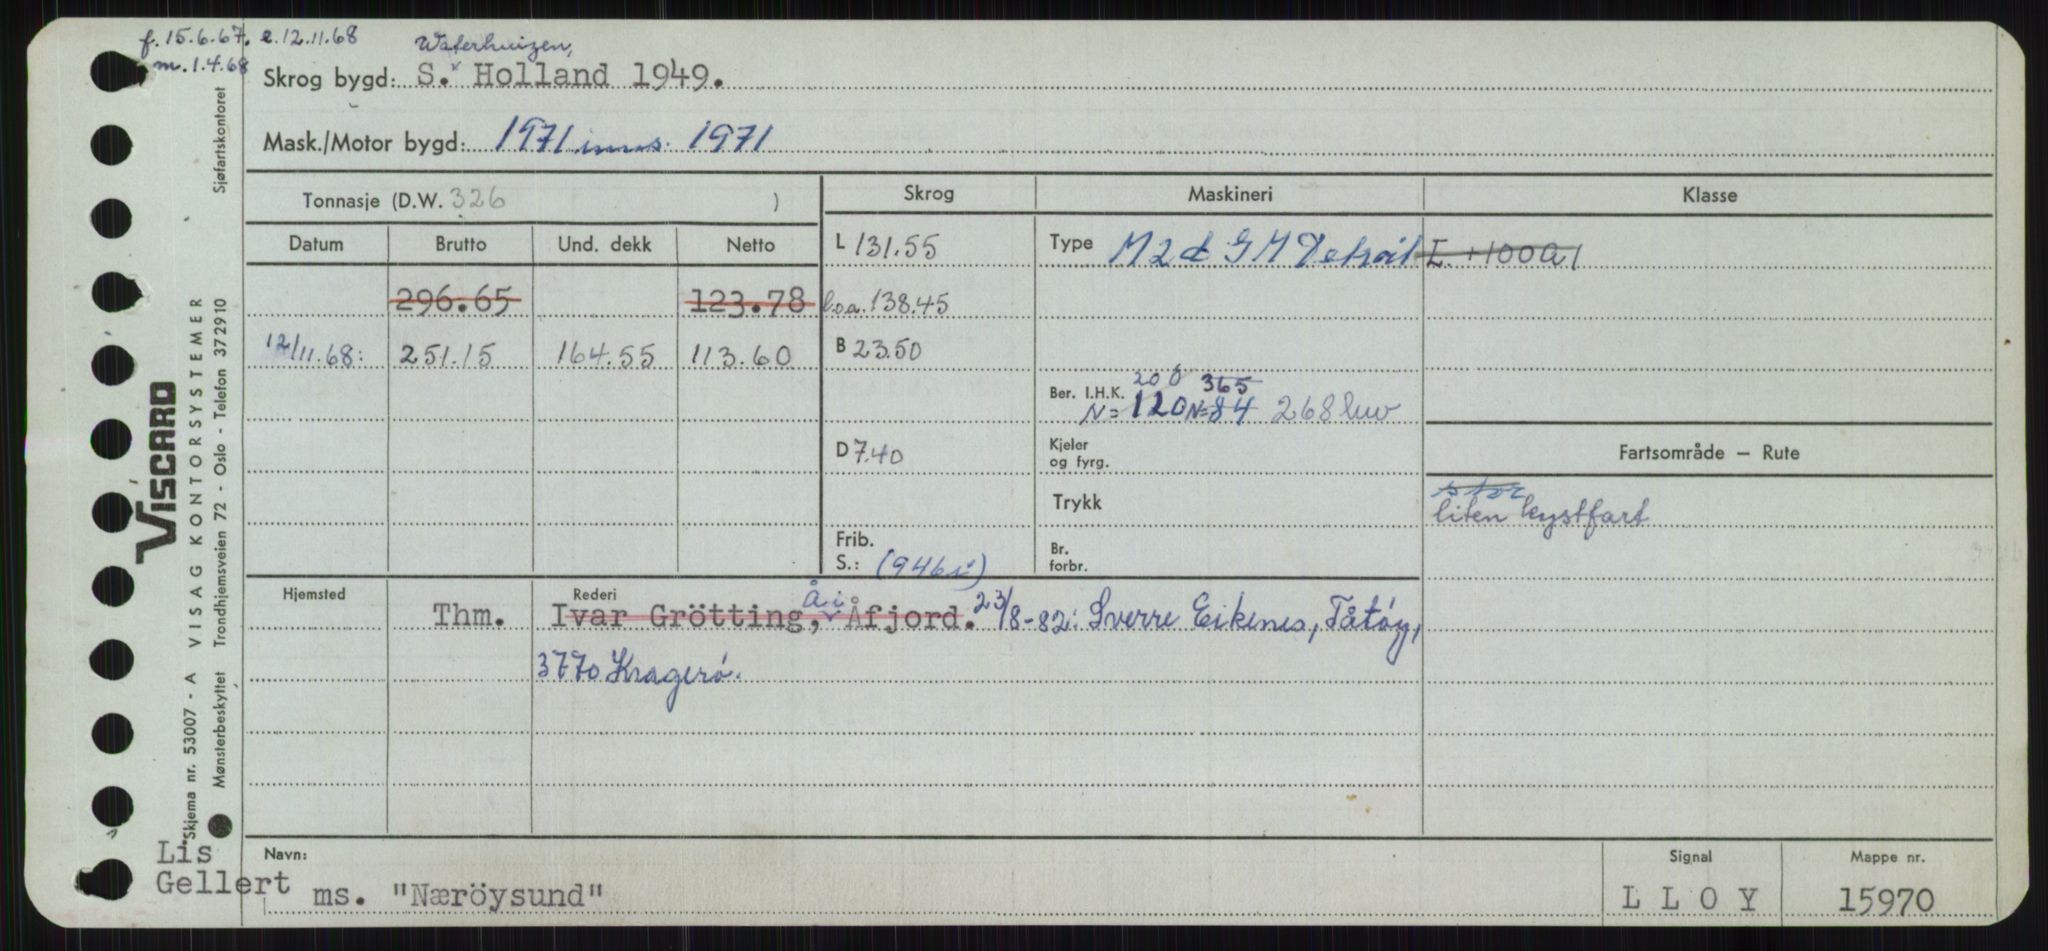 f. 15.6.67. e. 12.11.68
m. 1.4.68
Waterhuizen,
Skrog bygd: S. Holland 1949.
Mask./Motor bygd: 1971 inns. 1971
Tonnasje (D.W. 326 )
Skrog Maskineri Klasse
Datum Brutto Und. dekk Netto
L 131.55
Type M 2 d GM Detroit
I. +100A1
296.65 123.78
l.o.a. 138.45
12/11.68: 251.15 164.55 113.60
B 23.50
200 365
Ber. I.H.K.
N= 120 N= 84 268 kw
D 7.40
Kjeler
og fyrg.
Fartsområde — Rute
Trykk
stor
liten kystfart
Frib.
S.: (946)
Br.
forbr.
Hjemsted Rederi
Å i
Thm. Ivar Grötting, Åfjord. 23/8-82: Sverre Eikenes, Tåtøy,
3770 Kragerø.
Navn:
Signal
Mappe nr.
Lis
Gellert
ms. "Næröysund"
L L O Y
15970
VISCARD
Skjema nr. 53007 - A VISAG KONTORSYSTEMER
Mønsterbeskyttet Trondhjemsveien 72 - Oslo - Telefon 372910 Sjøfartskontoret